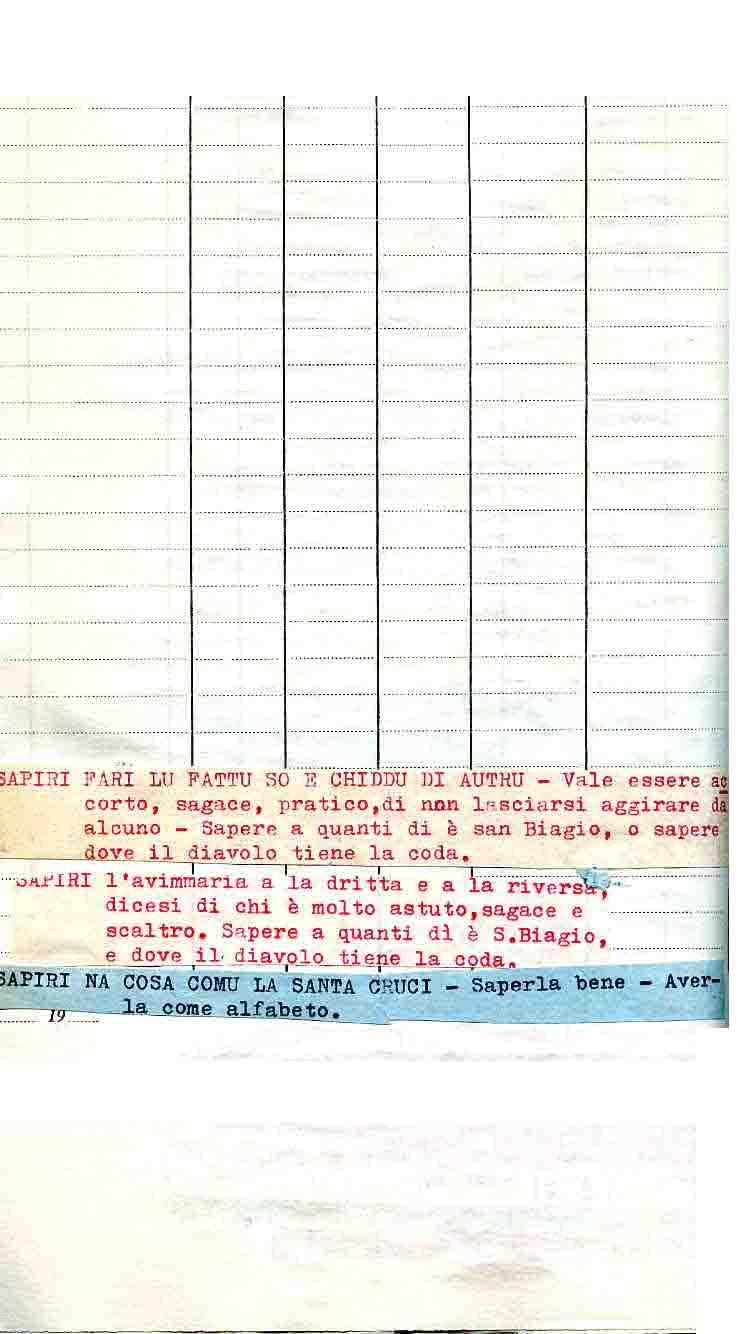 SAPIRI FARI LU FATTU SO E CHIDDU DI AUTRU - Vale essere ac
corto, sagace, pratico,di nnn lasciarsi aggirare da
alcuno - Sapere a quanti di è san Biagio, o sapere
dove il diavolo tiene la coda.
SAPIRI l'avimmaria a la dritta e a la riversa,
dicesi di chi è molto astuto,sagace e
scaltro. Sapere a quanti dì è S.Biagio,
e dove il diavolo tiene la coda.
SAPIRI NA COSA COMU LA SANTA CRUCI - Saperla bene - Aver-
la come alfabeto.
19